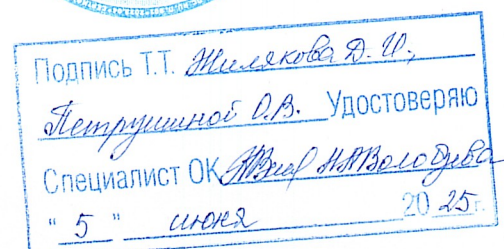 Подпись Т.Т. Жилякова Д. И.,
Петрушиной О.В. Удостоверяю
Специалист ОК
" 5 " июня 20 25 г.